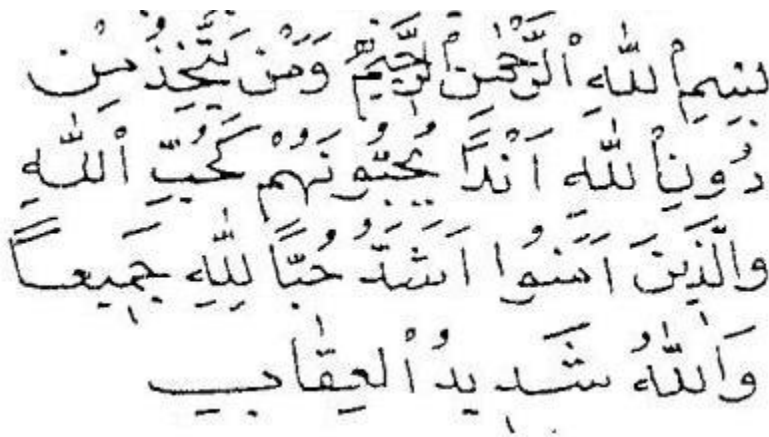 بِسْمِ اللّٰهِ الْرَّحْمٰنِ الْرَّحِيْمْ وَمَنْ يَتَّخِذُ مِنْ
دُونِ اللّٰهِ اَنْدًا يُحِبُّونَهُمْ كَحُبِّ اْللّٰهِ
وَالَّذِيْنَ اَمَنُوا اَشَدُّ حُبًّا لِلّٰهِ جَمِيعًا
وَاللّٰهُ شَدِيدُ اْلعِقَابِ